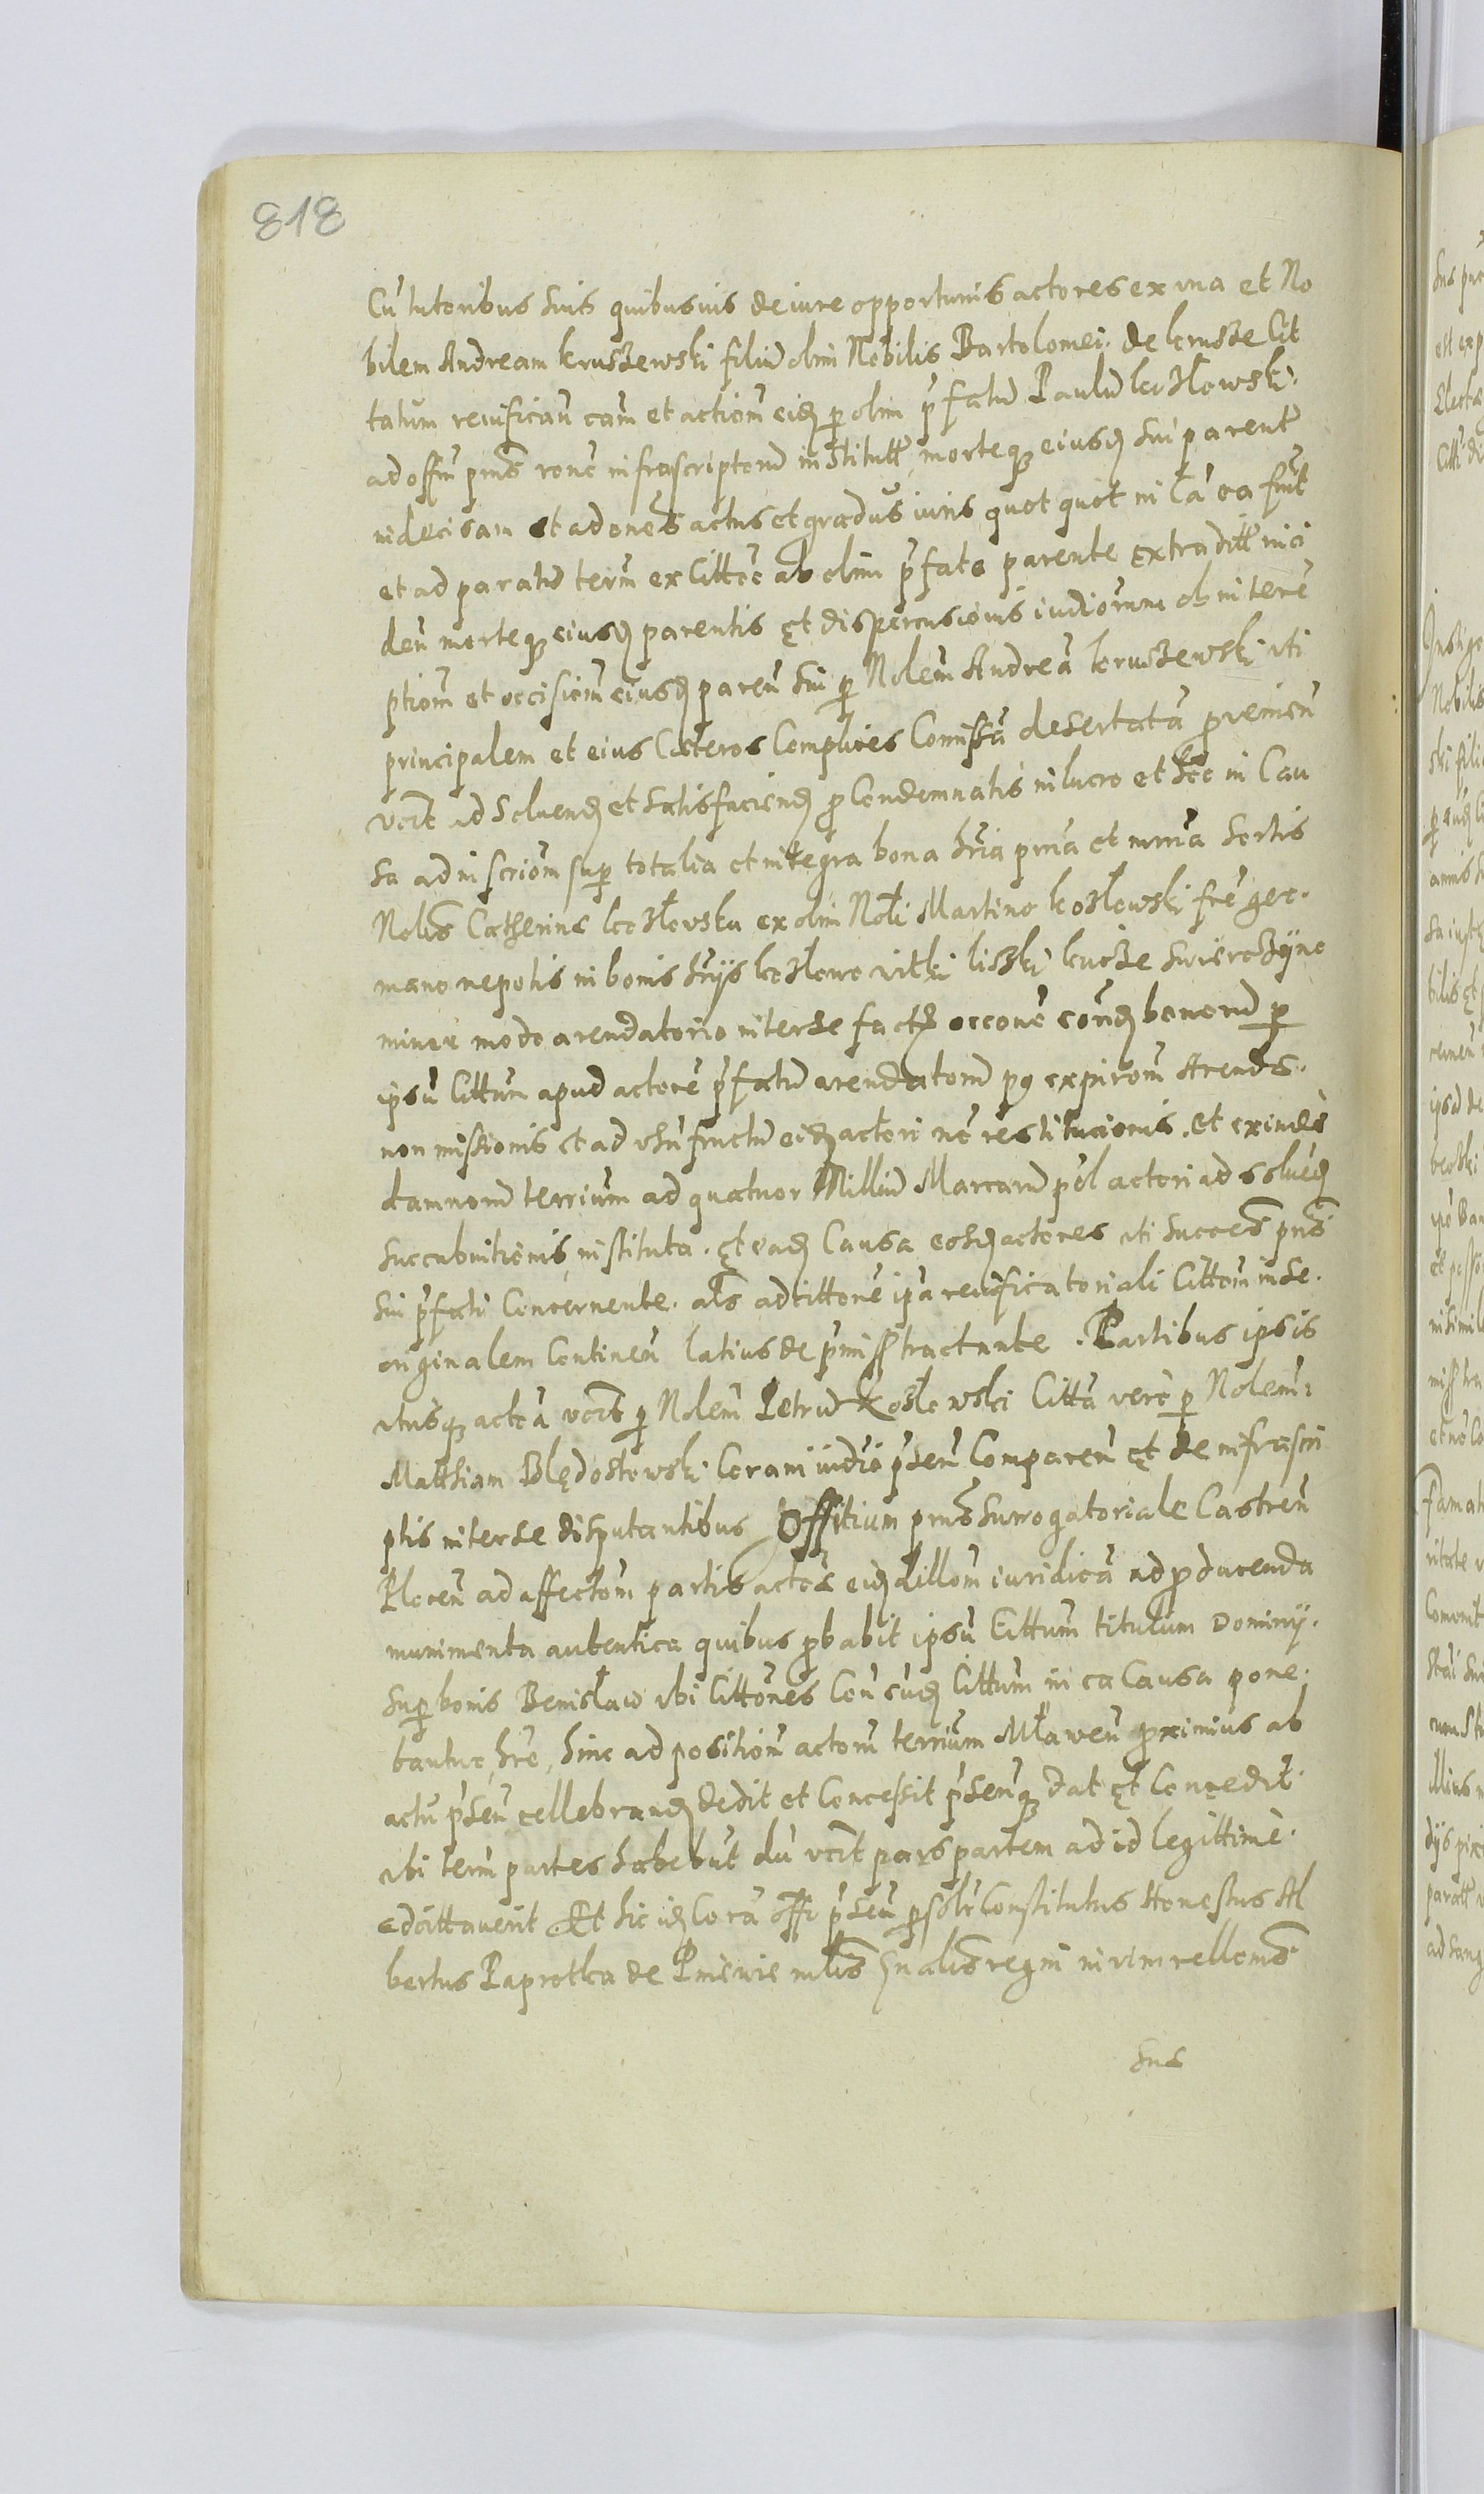 818
Cu̅ tutoribus suis quibusuis de iure opportunis actores ex vna et No
bilem Andream kruszewski filiu̅ olim Nobilis Bartolomei de krusze Cit
tatum reuificau̅ cam̅ et actiom̅ eid per olim p̅fatu̅ Paulu̅ kozłowski
ad offm̅ pn̅s rone̅ infrascriptoru̅ institutt̅ morteq eiusd sui parent̅
indecisam et ad one̅s actus et gradus iuris quot quot in Ca̅ ea fu̅it
et ad paratu̅ term̅ ex Citto̅e ab olim p̅fato parente extraditt̅ inci
den̅ morteq eiusd parentis et dispercusionis iudiorum ob intere̅
ptiom̅ et occisiom̅ eiusd paren̅ sui per Nolem̅ Andrea̅ kruszewski vti
principalem et eius Cæteros Complices Comissa̅ desertata̅ prouien̅
vert̅ ad soluend et satisfaciend pro Condemnatis in lucro et hoc in Cau
sa ad inscriom̅ super totalia et integra bona hr̅ia pm̅a et mr̅a sortis
Nolis̅ Catherine kozłowska ex olim Noli̅ Martino kozłowski fre̅ ger
mano nepotis in bonis hr̅ijs kozłowo vitki liszki kucze swierczÿno
minor modo arendatorio inter se fact occone̅ eor̅und bonoru̅ per
ipsu̅ Cittum̅ apud actore̅ p̅fatu̅ arendatoru̅ pq expirom̅ Arende
non missionis et ad vsu̅fructu̅ eid actori no̅ restitucionis et exinde
damnoru̅ terrium̅ ad quatuor Milliu̅ Marcaru̅ pol̅ actori ad solued
succubuitionis instituta et ead Causa eosd actores vti succes̅ pn̅s
sui p̅fati Concernente als̅ ad cittone̅ ipa̅ reuificatoriali Cittom̅ in se
originalem Contineu̅ latius de p̅miss tractante Partibus ipsis
vtrisq actea̅ vert̅ per Nolem̅ Petru̅ Kozłowski Citta̅ vero per Nolem̅
Matthiam Blędostowski Coram iudio̅ p̅sen̅ Comparen̅ et de infrascri
ptis inter se disputantibus Offitium pn̅s surrogatoriale Castren̅
Plocen̅ ad affectom̅ partis acto̅e eid dillom̅ iuridica̅ ad producenda
munimenta autentica quibus probabit ipsu̅ Cittum̅ titulum Dominij
super bonis Benisław vbi Cittones̅ Con̅ eud Cittum̅ in ea Causa pone
bantur, hr̅e, hinc ad positiom̅ actom̅ terrium̅ Mław̅en proximius ab
actu p̅sen̅ cellebrand dedit et Concessit p̅senq dat et Concedit
vbi term̅ partes habebut̅ du̅ vert̅ pars partem ad id legittime
adcittauerit Et hic id Cora̅ offi p̅sen̅ persolr̅ Constitutus Honestus Al
bertus Paprotka de Pniewie mlis̅ gnalis̅ regni in vim rellom̅s
sue